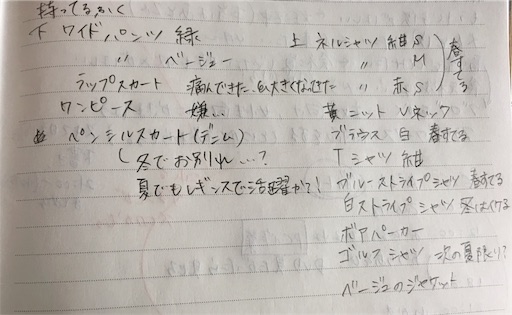 持ってる,ふく
下 ワイドパンツ 緑
〃 ベージュ
ラップスカート 痛んできた…白大きくなせた
ワンピース 嫌…
ペンシルスカート(デニム)
冬でお別れ…?
夏でもレギンスで活躍か?!
上 ネルシャツ 紺 S
〃 〃 M
〃 赤 S
春すてる
黄ニット Vネック
ブラウス 白 春すてる
Tシャツ 紺
ブルーストライプシャツ 春すてる
白ストライプシャツ 冬はイケる
ボアパーカー
ゴルフシャツ 次の夏限り?
ベージュのジャケット